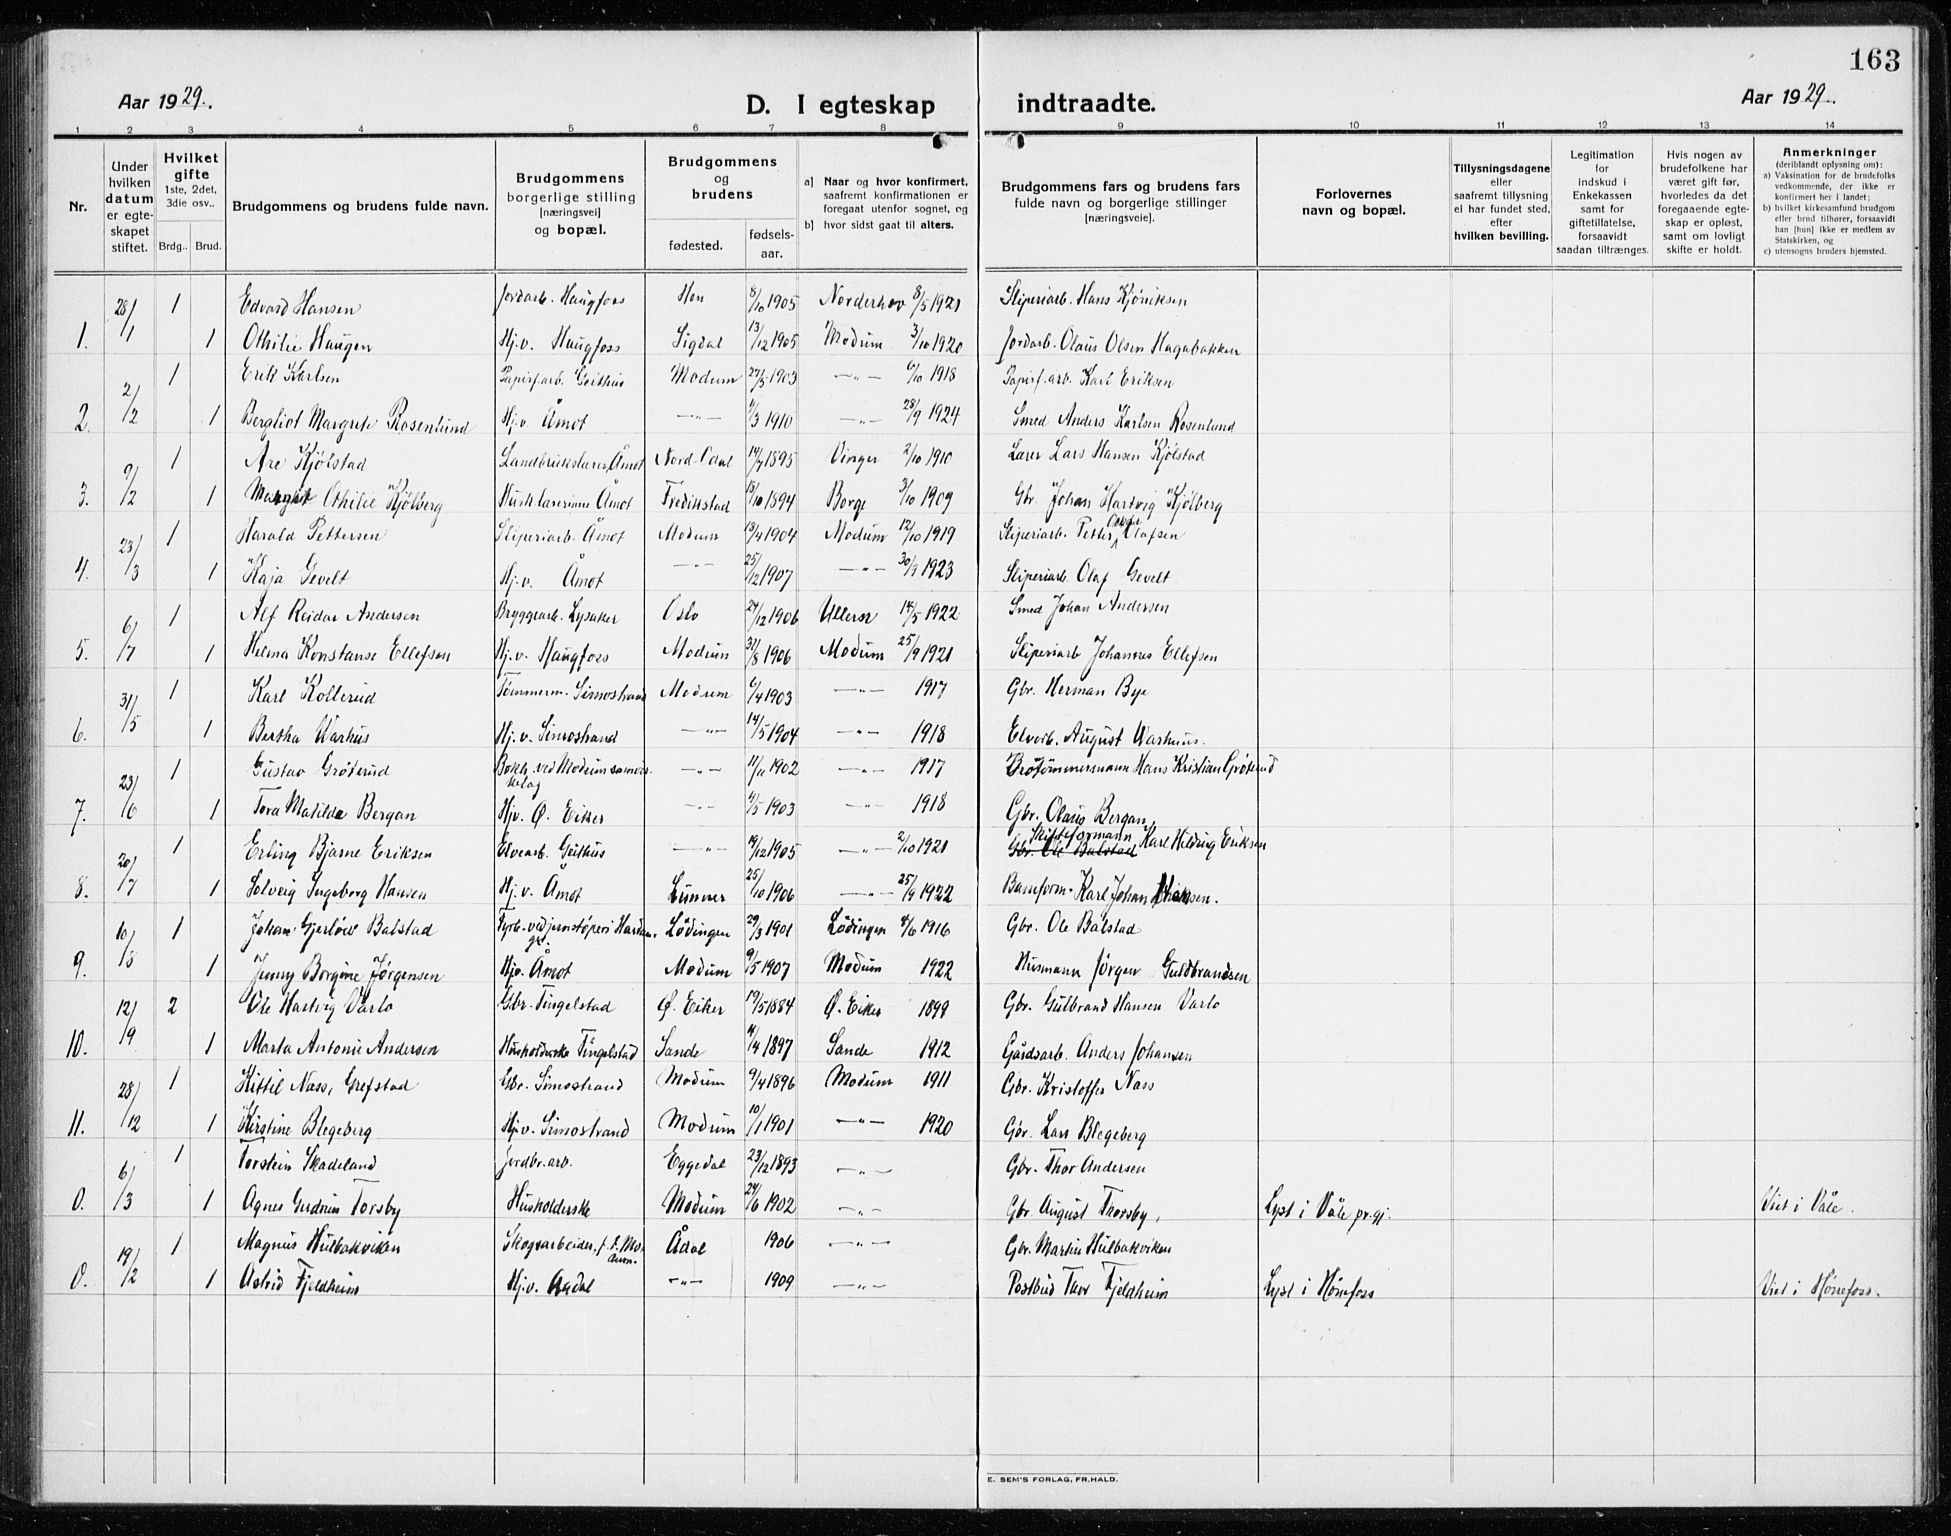 163
Aar 1929.
D. I egteskap indtraadte.
Aar 1929.
1 2 3 4 5 6 7 8 9 10 11 12 13 14
Nr.
Under hvilken datum er egteskapet stiftet.
Hvilket gifte 1ste, 2det, 3die osv..
Brdg.. Brud.
Brudgommens og brudens fulde navn.
Brudgommens borgerlige stilling [næringsvei] og bopæl.
Brudgommens og brudens
fødested. fødselsaar.
a) Naar og hvor konfirmert, saafremt konfirmationen er foregaat utenfor sognet, og
b) hvor sidst gaat til alters.
Brudgommens fars og brudens fars fulde navn og borgerlige stillinger [næringsveie].
Forlovernes navn og bopæl.
Tillysningsdagene eller saafremt tillysning ei har fundet sted, efter hvilken bevilling.
Legitimation for indskud i Enkekassen samt for giftetillatelse, forsaavidt saadan tiltrænges.
Hvis nogen av brudefolkene har været gift før, hvorledes da det foregaaende egteskap er opløst, samt om lovligt skifte er holdt.
Anmerkninger (deriblandt oplysning om):
a) Vaksination for de brudefolks vedkommende, der ikke er konfirmert her i landet;
b) hvilket kirkesamfund brudgom eller brud tilhører, forsaavidt han [hun] ikke er medlem av Statskirken, og
c) utensogns bruders hjemsted.
28/1 1 Edvard Hansen Jordarb. Haugfoss Hen 8/10 1905 Norderhov 8/5 1921 Sliperiarb. Hans Kjöniksen
1. 1 Othilie Haugen Hj.v. Haugfoss Sigdal 13/12 1905 Modum 3/10 1920 Jordarb. Olaus Olsen Hagabakken
2/2 1 Erik Karlsen Papirf.arb. Geithus Modum 27/5 1903 —"— 6/10 1918 Papirf.arb. Karl Eriksen
2. 1 Bergliot Margrete Rosenlund Hj.v. Åmot —"— 11/3 1910 —"— 28/9 1924 Smed Anders Karlsen Rosenlund
9/2 1 Are Kjölstad Landbrukslærer, Åmot Nord-Odal 14/7 1895 Vinger 2/10 1910 Lærer Lars Hansen Kjölstad
3. 1 Margit Othilie Kjölberg Husk.lærerinne Åmot Fredrikstad 18/10 1894 Borge 3/10 1909 Gbr. Johan Hartvig Kjölberg
23/3 1 Harald Pettersen Sliperiarb. Åmot Modum 13/4 1904 Modum 12/10 1919 Sliperiarb. Petter Olafsen
4. 1 Kaja Gevelt Hj.v. Åmot —"— 25/12 1907 —"— 30/9 1923 Sliperiarb. Olaf Gevelt
6/7 1 Alf Reidar Andersen Bryggearb. Lysaker Oslo 27/12 1906 Ullern 14/5 1922 Smed Johan Andersen
5. 1 Helma Konstanse Ellefsen Hj.v. Haugfoss Modum 31/8 1906 Modum 25/9 1921 Sliperiarb Johannes Ellefsen
31/5 1 Karl Kollerud Tömmerm. Simostrand Modum 6/4 1903 —"— 1917 Gbr. Herman Bye
6. 1 Bertha Aarhus Hj.v. Simostrand —"— 14/5 1904 —"— 1918 Elvarb. August Aarhuus.
23/6 1 Gustav Gröterud Bokh. ved Modum samvirkelag —"— 11/11 1902 —"— 1917 Brötömmermann Hans Kristian Gröterud
7. 1 Tora Matilde Bergan Hjv. Ø. Eiker —"— 4/5 1903 —"— 1918 Gbr. Olaus Bergan,
20/7 1 Erling Bjarne Eriksen Elvearb. Geithus —"— 19/12 1905 —"— 2/10 1921 Gbr. Ole Balstad Skifteformann Karl Hilding Eriksen
8. 1 Solveig Ingeborg Hansen Hj.v. Åmot Lunner 25/10 1906 —"— 25/9 1922 Baneform. Karl Johan
10/8 1 Johan Gjerlöw Balstad Fyrb. ved jernstöperi Lödingen 29/3 1901 Lödingen 4/6 1916 Gbr. Ole Balstad
9. 1 Jenny Borgine Jörgensen Hjv. Åmot Modum 9/5 1907 Modum 1922 Husmann Jörgen Guldbrandsen
12/9 2 Ole Hartvig Varlo Gbr. Tingelstad Ø. Eiker 19/5 1884 Ø. Eiker 1899 Gbr. Gulbrand Hansen Varlo
10. 1 Marta Antonie Andersen Husholderske Tingelstad Sande 11/4 1897 Sande 1912 Gårdsarb. Anders Johansen
28/12 1 Kittil Nass, Grefstad Gbr. Simostrand Modum 9/4 1896 Modum 1911 Gbr. Kristoffer Nass
11. 1 Kirstine Blegeberg Hj.v. Simostrand Modum 10/1 1901 —"— 1920 Gbr. Lars Blegeberg
6/3 1 Torstein Skadeland Jordbr.arb. Eggedal 23/12 1893 —"— Gbr. Thor Andersen
0. 1 Agnes Gudrun Torsby Husholderske Modum 24/6 1902 —"— Gbr. August Thorsby, Lyst i Våle pr.gj. Viet i Våle.
19/2 1 Magnus Hulbakviken Skogsarbeider, f.t. Modum Ådal 1906 —"— Gbr. Martin Hulbakviken
0. 1 Astrid Fjeldheim Hj.v. Aadal —"— 1909 —"— Postbud Thor Fjeldheim Lyst i Hönefoss Viet i Hönefoss.
E. SEM'S FORLAG, FR.HALD.